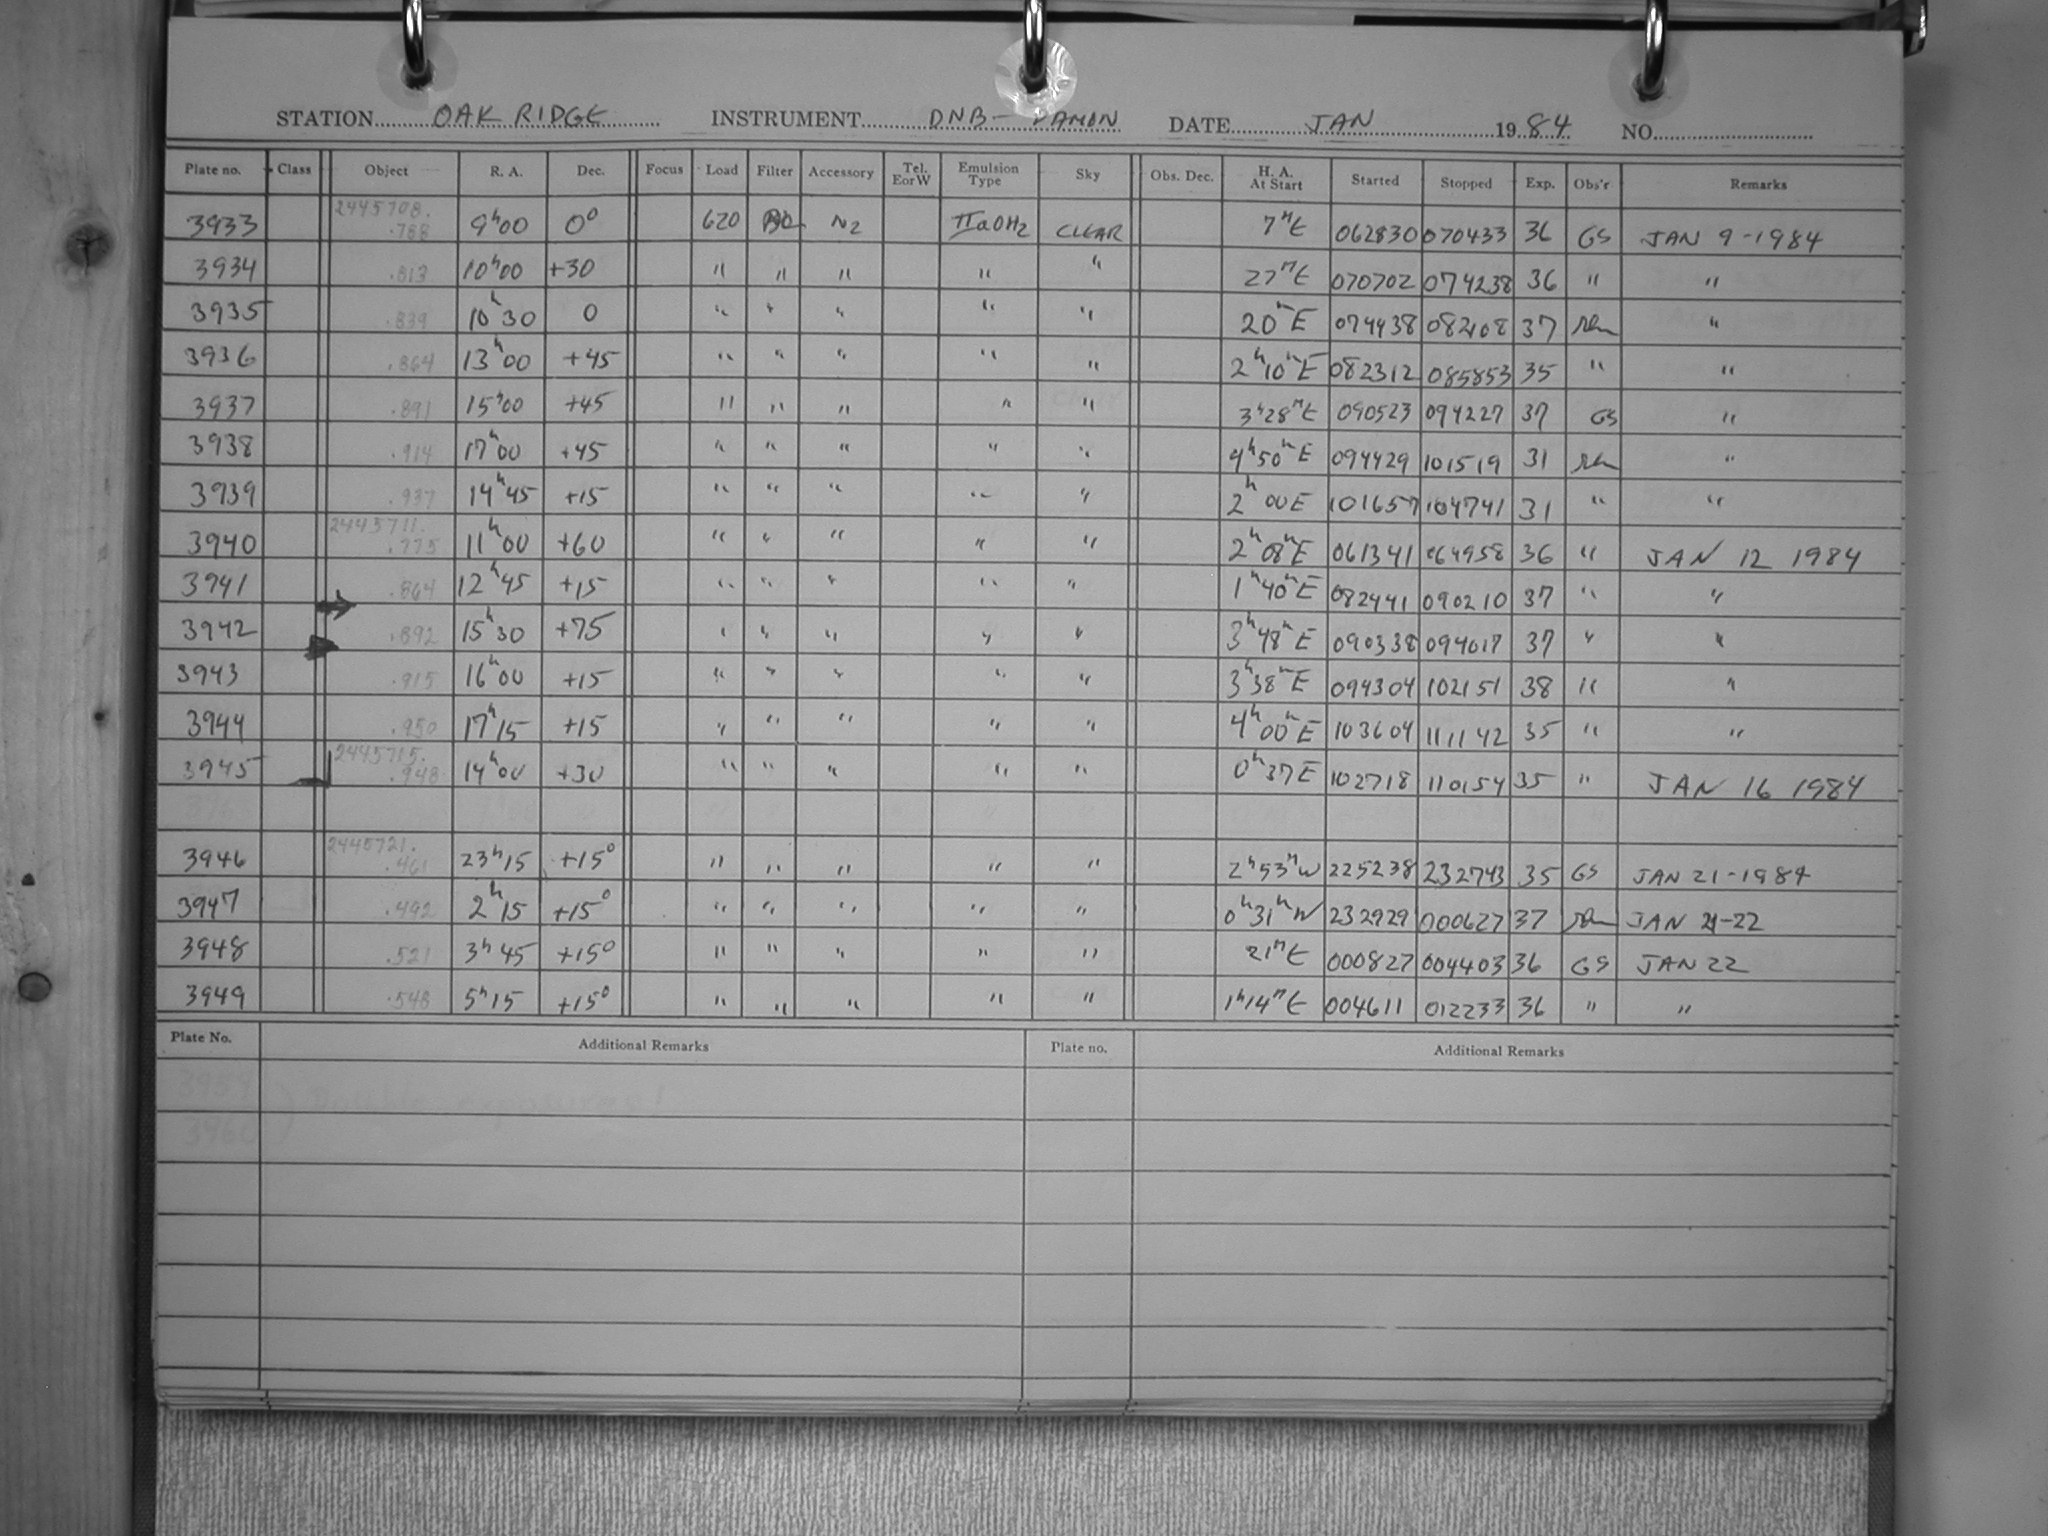 STATION OAK RIDGE INSTRUMENT DNB - DAMON DATE JAN 1984 NO.
Plate no. Class Object R. A. Dec. Focus Load Filter Accessory Tel. E or W Emulsion Type Sky Obs. Dec. H. A. At Start Started Stopped Exp. Obs'r Remarks
3933 2445708.788 9h00 0° 620 N2 IIaOH2 CLEAR 7mE 062830 070433 36 GS JAN 9-1984
3934 .813 10h00 +30 " " " " " 27mE 070702 074238 36 " "
3935 .839 10h30 0 " " " " " 20mE 074438 082108 37 "
3936 .864 13h00 +45 " " " " " 2h10mE 082312 085853 35 " "
3937 .891 15h00 +45 " " " " " 3h28mE 090523 094227 37 GS "
3938 .914 17h00 +45 " " " " " 4h50mE 094429 101519 31 "
3939 .937 14h45 +15 " " " " " 2h00E 101657 104741 31 " "
3940 2445711.775 11h00 +60 " " " " " 2h08mE 061341 064958 36 " JAN 12 1984
3941 .864 12h45 +15 " " " " " 1h40mE 082441 090210 37 " "
3942 .892 15h30 +75 " " " " " 3h48mE 090338 094017 37 " "
3943 .915 16h00 +15 " " " " " 3h38mE 094304 102151 38 " "
3944 .950 17h15 +15 " " " " " 4h00mE 103604 111142 35 " "
3945 2445715.948 14h00 +30 " " " " " 0h37E 102718 110154 35 " JAN 16 1984
3946 2445721.461 23h15 +15° " " " " " 2h53mW 225238 232743 35 GS JAN 21-1984
3947 .492 2h15 +15° " " " " " 0h31mW 232929 000627 37 JAN 21-22
3948 .521 3h45 +15° " " " " " 21mE 000827 004403 36 GS JAN 22
3949 .548 5h15 +15° " " " " " 1h14mE 004611 012233 36 " "
Plate No. Additional Remarks Plate no. Additional Remarks